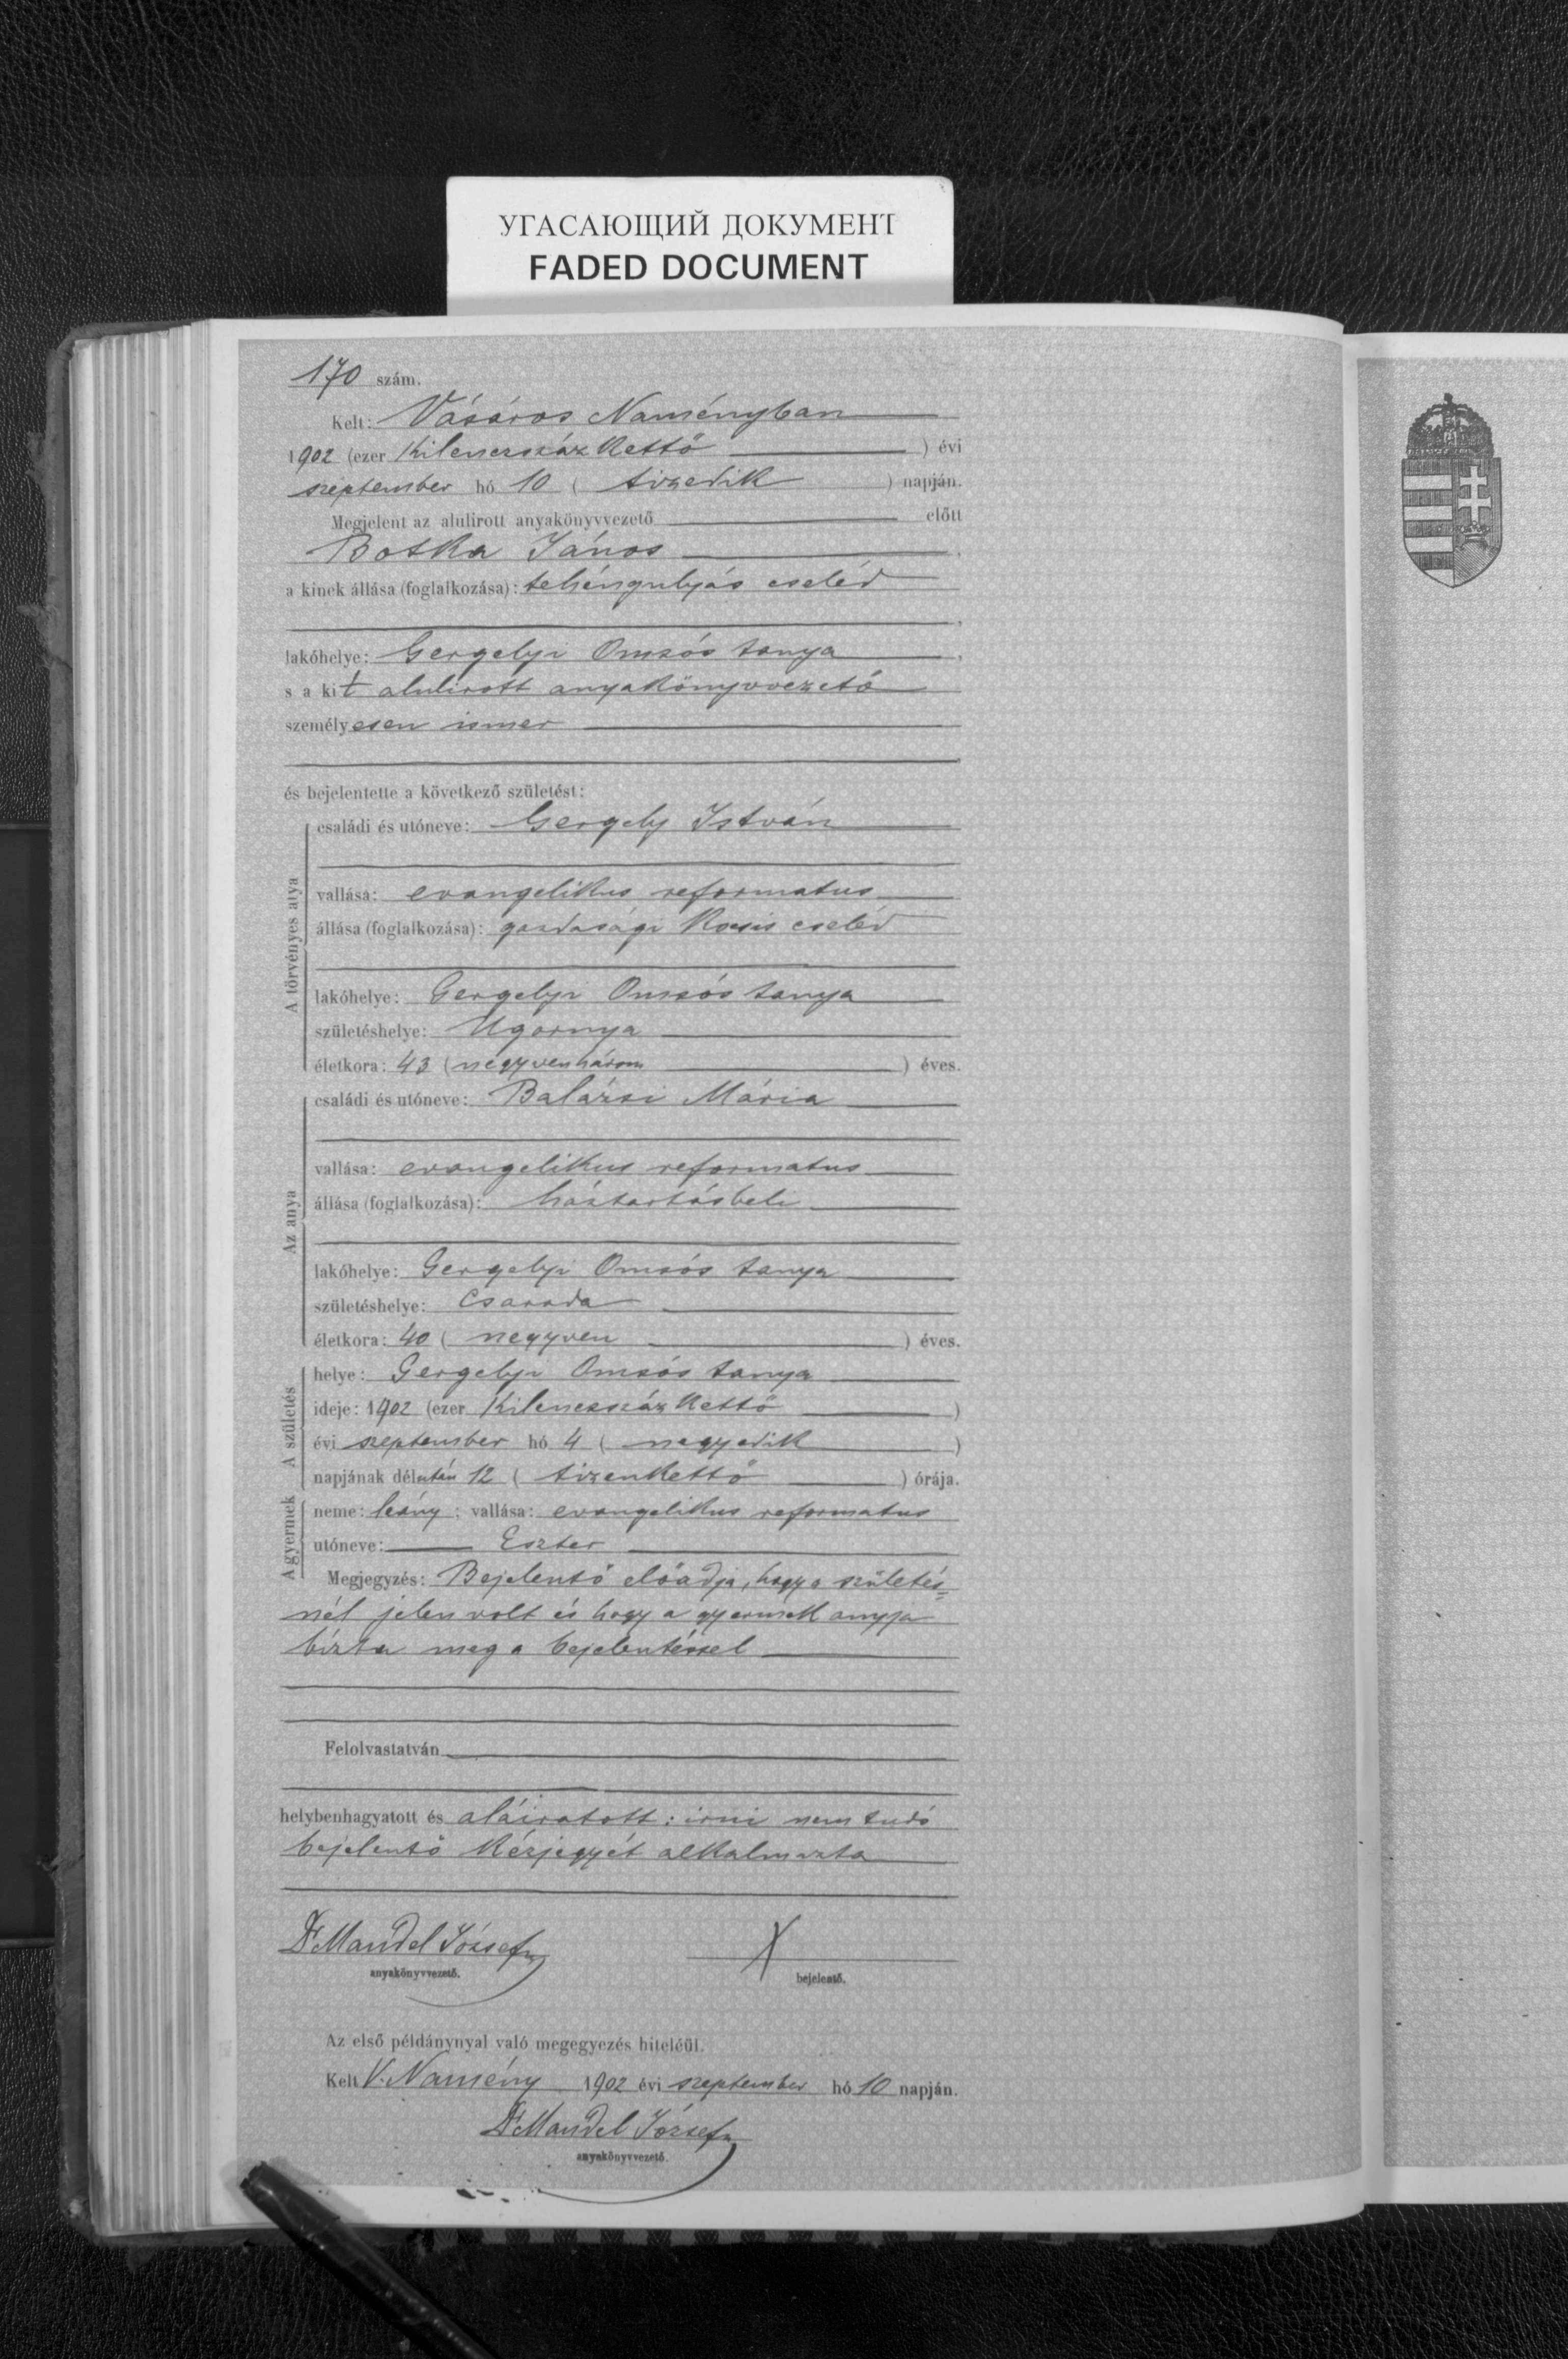 УГАСАЮЩИЙ ДОКУМЕНТ
FADED DOCUMENT
170 szám.
Kelt: Vásáros Naményban
1902 (ezer kilencszáz kettő ) évi
szeptember hó 10 ( tizedik ) napján.
Megjelent az alulirott anyakönyvvezető előtt
Botka János ,
a kinek állása (foglalkozása): tehéngulyás cseléd
,
lakóhelye: Gergelyi Omsós tanya ,
s a kit alulirott anyakönyvvezető
személyesen ismer
és bejelentette a következő születést:
A törvényes atya
családi és utóneve: Gergely István
vallása: evangelikus reformatus
állása (foglalkozása): gazdasági kocsis cseléd
lakóhelye: Gergelyi Omsós tanya
születéshelye: Ugornya
életkora: 43 (negyvenhárom ) éves.
Az anya
családi és utóneve: Balázsi Mária
vallása: evangelikus reformatus
állása (foglalkozása): háztartásbeli
lakóhelye: Gergelyi Omsós tanya
születéshelye: Csaroda
életkora: 40 ( negyven ) éves.
A születés
helye: Gergelyi Omsós tanya
ideje: 1902 (ezer kilencszáz kettő )
évi szeptember hó 4 ( negyedik )
napjának délután 12 ( tizenkettő ) órája.
A gyermek
neme: leány ; vallása: evangelikus reformatus
utóneve: Eszter
Megjegyzés: Bejelentő előadja, hogy a születés=
nél jelen volt és hogy a gyermek anyja
bízta meg a bejelentéssel
Felolvastatván
helybenhagyatott és aláiratott: irni nem tudó
bejelentő kézjegyét alkalmazta
Dr Mandel József X
anyakönyvvezető. bejelentő.
Az első példánynyal való megegyezés hiteléül.
Kelt V. Namény 1902 évi szeptember hó 10 napján.
Dr Mandel József
anyakönyvvezető.